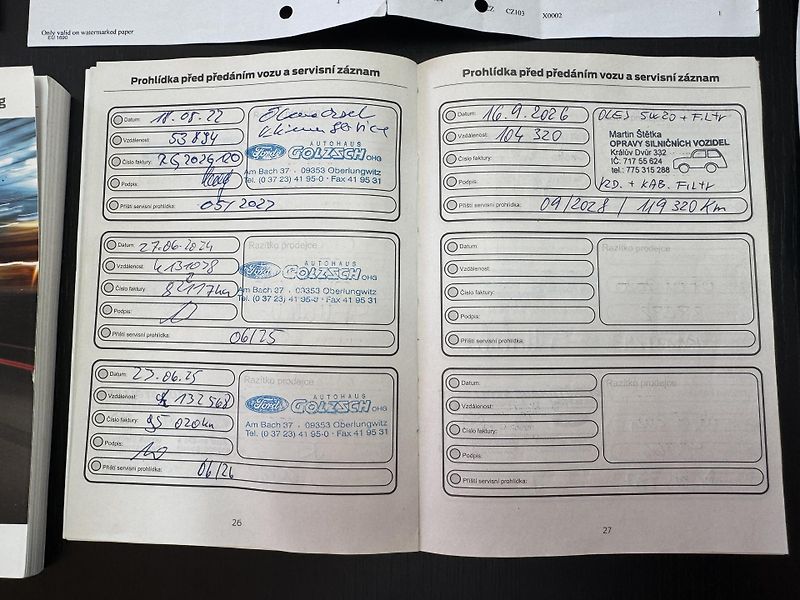 Only valid on watermarked paper
EU 1690
CZ103 X0002 1
Prohlídka před předáním vozu a servisní záznam
Datum: 18.05.22
Vzdálenost: 53 894
Číslo faktury:
Podpis:
Příští servisní prohlídka:
AUTOHAUS
Ford GOLZSCH OHG
Am Bach 37 • 09353 Oberlungwitz
Tel. (0 37 23) 41 95-0 • Fax 41 95 31
Datum: 27.06.2024
Vzdálenost:
Číslo faktury: 82117km
Podpis:
Příští servisní prohlídka: 06/25
Razítko prodejce
AUTOHAUS
Ford GOLZSCH OHG
Am Bach 37 • 09353 Oberlungwitz
Tel. (0 37 23) 41 95-0 • Fax 41 95 31
Datum: 27.06.25
Vzdálenost: 132568
Číslo faktury: 95 020km
Podpis:
Příští servisní prohlídka: 06/26
Razítko prodejce
AUTOHAUS
Ford GOLZSCH OHG
Am Bach 37 • 09353 Oberlungwitz
Tel. (0 37 23) 41 95-0 • Fax 41 95 31
26
Prohlídka před předáním vozu a servisní záznam
Datum: 16.9.2026
Vzdálenost: 104 320
Číslo faktury:
Podpis:
Příští servisní prohlídka: 09/2028 / 119 320 Km
OLEJ 5W20 + FILTR
Martin Štětka
OPRAVY SILNIČNÍCH VOZIDEL
Králův Dvůr 332
IČ: 717 55 624
tel.: 775 315 288
+ KAB. FILTR
Datum:
Vzdálenost:
Číslo faktury:
Podpis:
Příští servisní prohlídka:
Razítko prodejce
Datum:
Vzdálenost:
Číslo faktury:
Podpis:
Příští servisní prohlídka:
Razítko prodejce
27